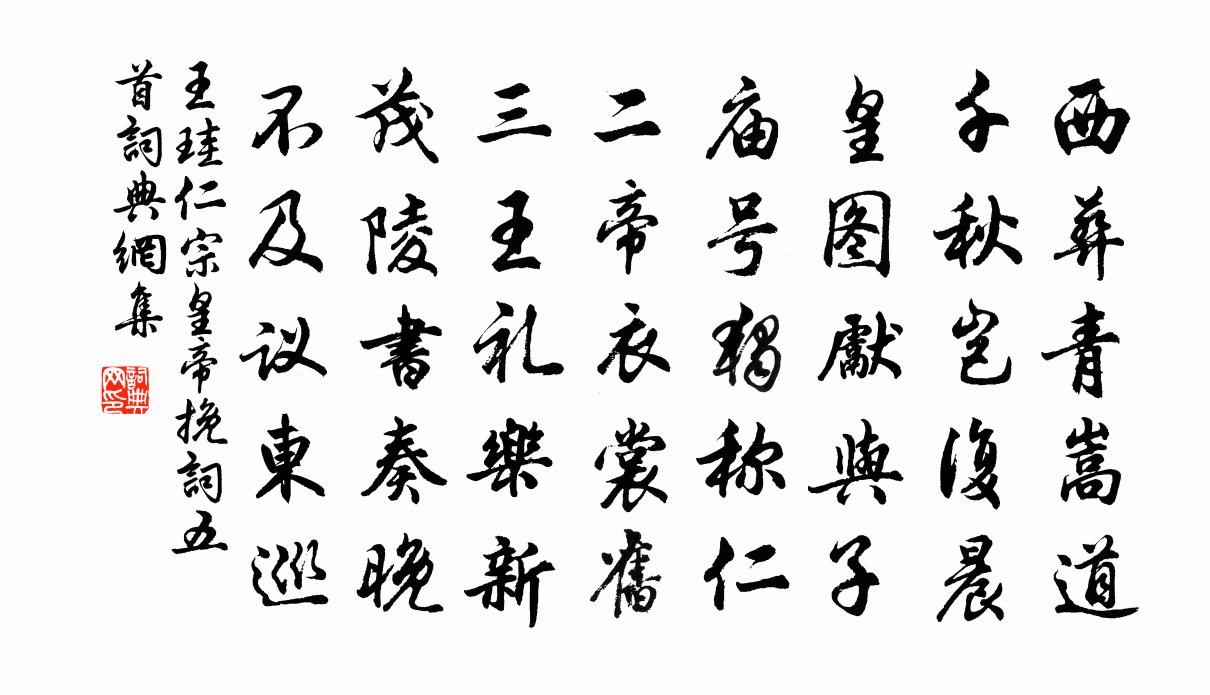 西葬青嵩道
千秋岂復晨
皇图獻與子
庙号独称仁
二帝衣裳舊
三王礼樂新
茂陵書奏晚
不及议東巡
王珪仁宗皇帝挽詞五
首詞典網集
詞典
网印